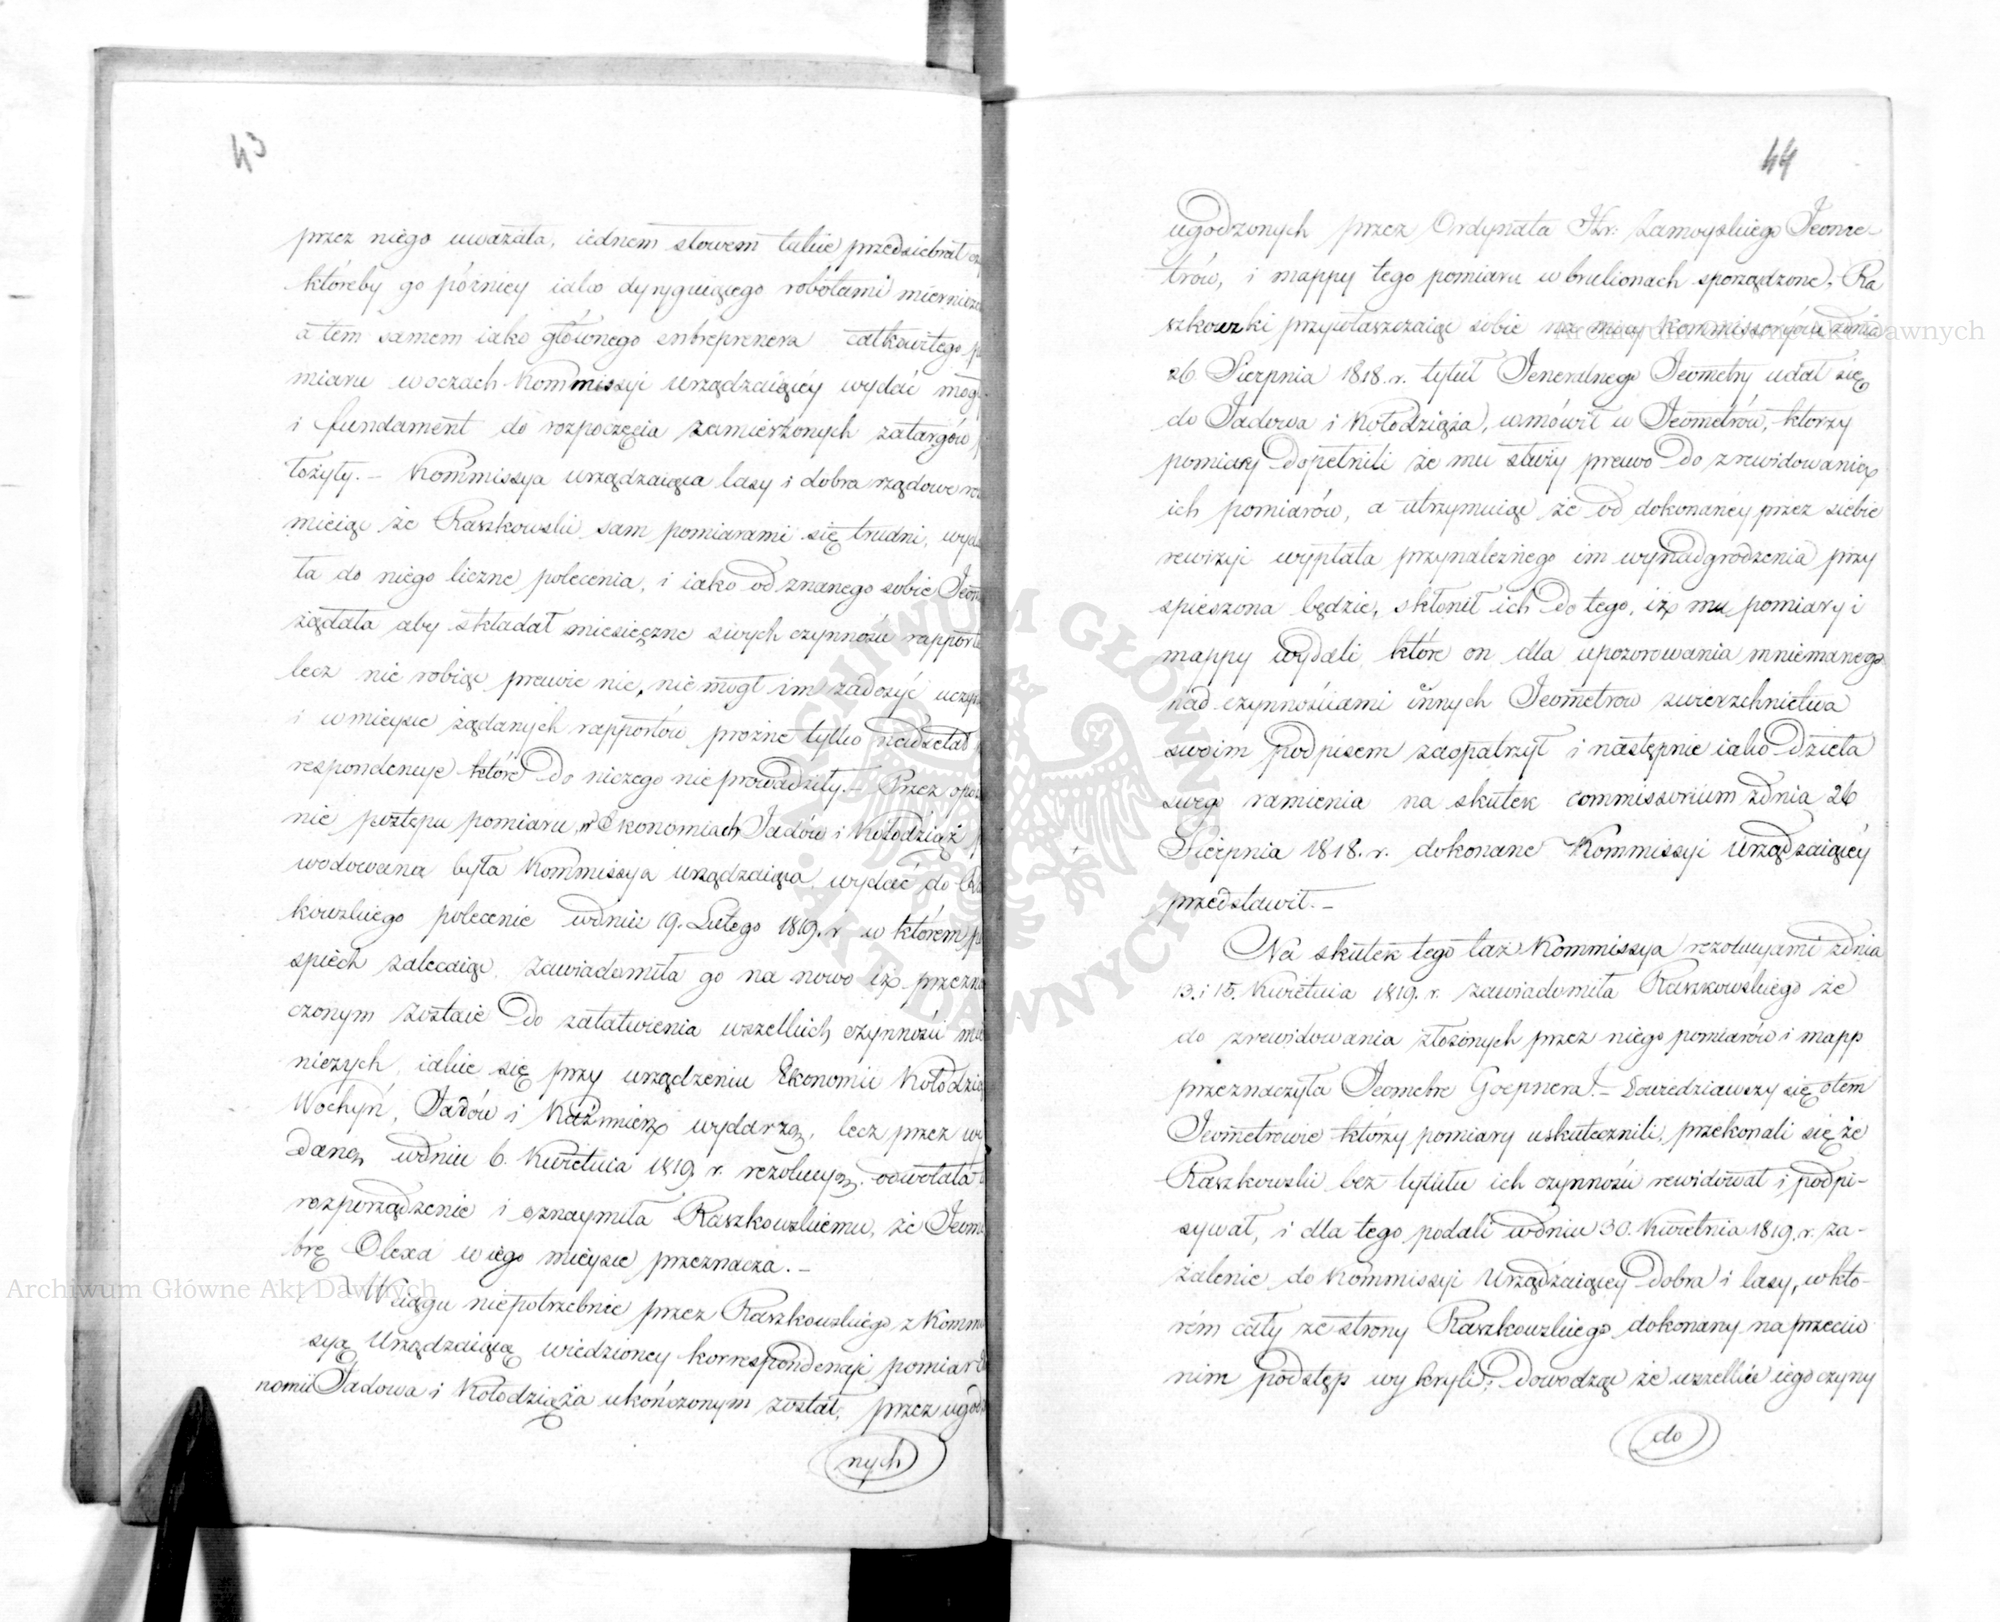 43
przez niego uważała, iednem słowem takie przedsiebrał
któreby go późniey iako dyryguiącego robotami mierni
a tem samem iako głównego entreprenera całkowitego
miaru w oczach Kommissyi urządzaiącéy wydać mog
i fundament do rozpoczęcia zamierzonych zatargów
łożyły. – Kommissya urządzaiąca lasy i dobra rządowe
mieiąc że Raszkowski sam pomiarami się trudni, wyda
ła do niego liczne polecenia, i iako od znanego sobie Jeom
żądała aby składał miesięczne swych czynności rapport
lecz nie robiąc prawie nic, nie mógł im zadosyć uczyn
i w mieysce żądanych rapportów prożne tylko nadsełał
respondencye które do niczego nie prowadziły. – Przez opoz
nie postępu pomiaru w Ekonomiach Jadów i Kołodziąż
wodowana była Kommissya urządzaiąca wydać do Ra
kowskiego polecenie w dniu 19. Lutego 1819. r w którem
spiech zalecaiąc, zawiadomiła go na nowo iż przezna
czonym zostaie do załatwienia wszelkich czynności mie
niczych, iakie się przy urządzeniu Ekonomii Kołodzią
Wochyń, Jadów i Kaźmierz wydarzą, lecz przez wy
daną w dniu 6. Kwietnia 1819 r. rezolucyą odwołała
rozporządzenie i oznaymiła Raszkowskiemu, że Jeom
trę Olexa w iego mieysce przeznacza. –
W ciągu niepotrzebnie przez Raszkowskiego z Kommi
syą Urządzaiącą wiedzioney korrespondencyi pomiar
nomii Jadowa i Kołodziąża ukończonym został, przez ugod
nych
44
ugodzonych przez Ordynata Hr: Zamoyskiego Jeome-
trów, i mappy tego pomiaru w brulionach sporządzone, Ra
szkowski przywłaszczaiąc sobie na mocy Kommissoryów z dnia
26 Sierpnia 1818. r. tytuł Jeneralnego Jeometry udał się
do Jadowa i Kołodziąża, wmówił w Jeometrów, którzy
pomiary dopełnili że mu służy prawo do zrewidowania
ich pomiarów, a utrzymuiąc że od dokonanéy przez siebie
rewizyi wypłata przynależnego im wynadgrodzenia przy
spieszona będzie, skłonił ich do tego, iż mu pomiary i
mappy wydali, które on dla upozorowania mniemanego
nad czynnościami innych Jeometrów zwierzchnictwa
swoim podpisem zaopatrzył i następnie iako dzieła
swego ramienia na skutek commissorium z dnia 26
Sierpnia 1818. r. dokonane Kommissyi urządzaiącéy
przedstawił. –
Na skutek tego taż Kommissya rezolucyami z dnia
13. i 15. Kwietnia 1819. r. zawiadomiła Raszkowskiego że
do zrewidowania złożonych przez niego pomiarów i mapp
przeznaczyła Jeometrę Goepnera. – Dowiedziawszy się o tem
Jeometrowie którzy pomiary uskutecznili, przekonali się że
Raszkowski bez tytułu ich czynności rewidował i podpi-
sywał, i dla tego podali w dniu 30. Kwietnia 1819. r. za-
żalenie do Kommissyi Urządzaiącey dobra i lasy, w któ-
rém cały ze strony Raszkowskiego dokonany naprzeciw
nim podstęp wykryli, dowodząc że wszelkie iego czyny
do
Archiwum Główne Akt Dawnych
Archiwum Główne Akt Dawnych
ARCHIWUM GŁÓWNE AKT DAWNYCH